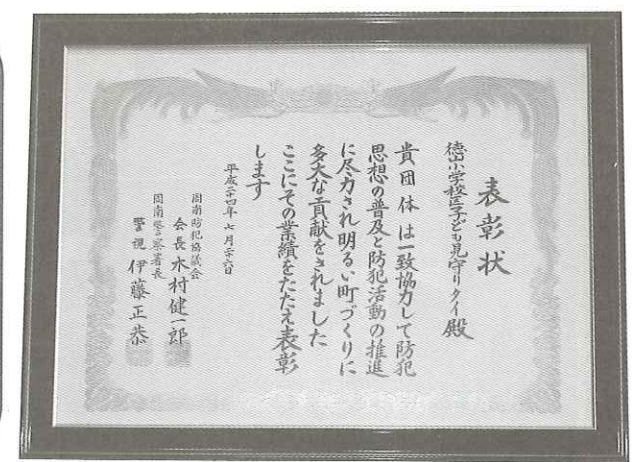 表彰状
徳山小学校区子ども見守りタイ 殿
貴団体は一致協力して防犯
思想の普及と防犯活動の推進
に尽力され明るい町づくりに
多大な貢献をされました
ここにその業績をたたえ表彰
します
平成二十四年七月二十六日
周南防犯協議会
会長 木村健一郎
周南警察署長
警視 伊藤正恭